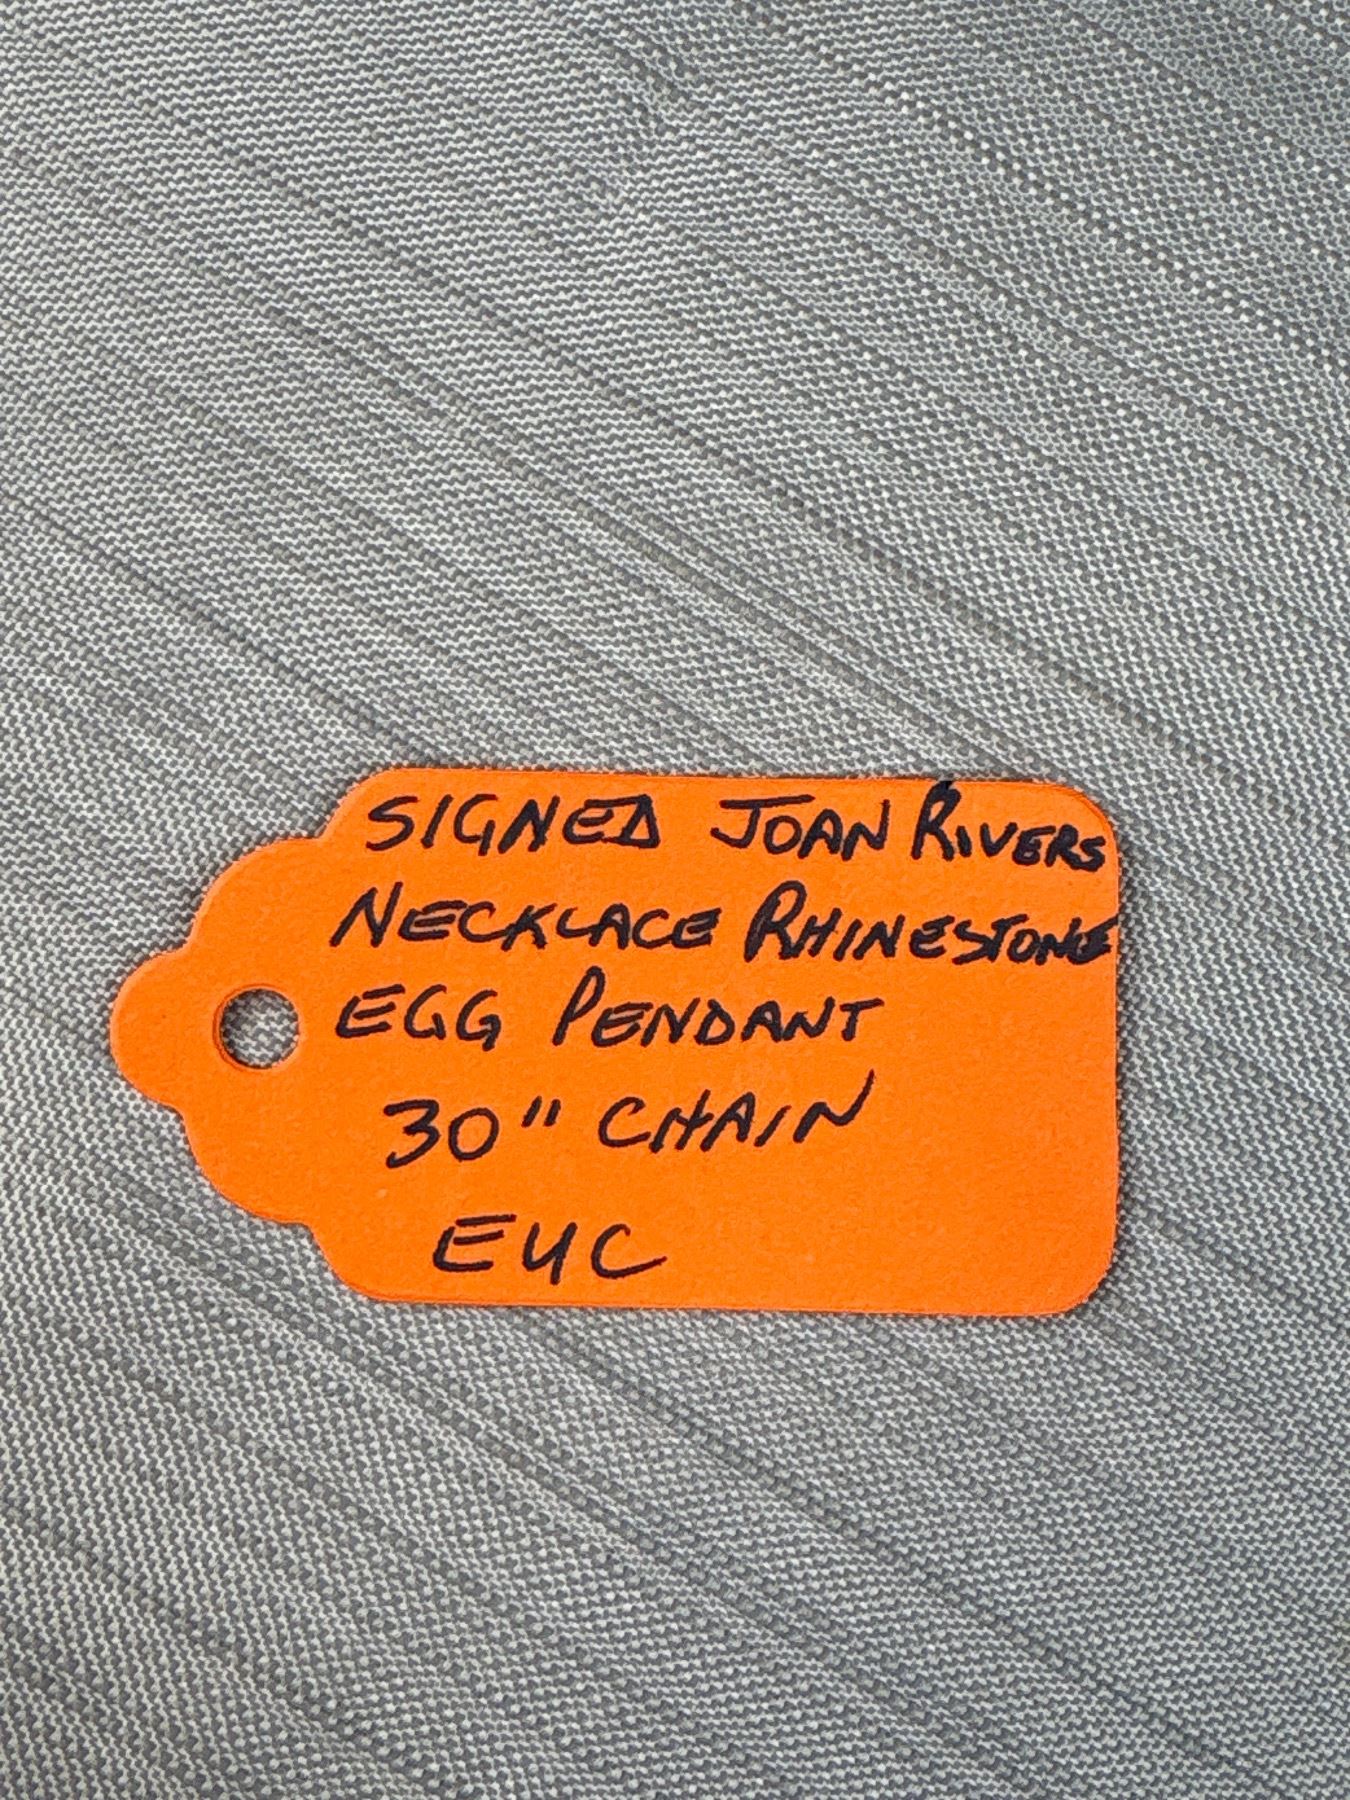 SIGNED JOAN RIVERS
NECKLACE RHINESTONE
EGG PENDANT
30" CHAIN
EUC